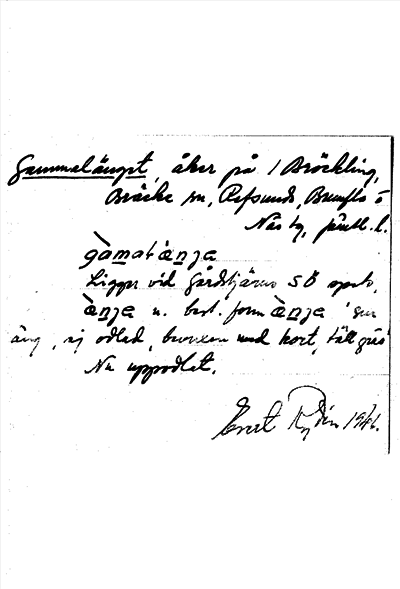 Gammelängət, åker på 1 Bröckling,
Bräcke sn, Refsunds, Brunflo o
Näs tg, Jämtl. l.
gàmal ànja
Ligger vid Gårdstjärns SÖ spets,
ànja n. best. form ànja 'sur
äng, ej odlad, bevuxen med kort, tätt gräs'
Nu uppodlat.
Evert Rydén 1946.